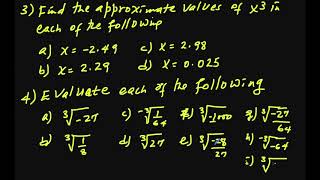 3) Find the approximate values of x3 in
each of the following
a) x = -2.49 c) x = 2.98
b) x = 2.29 d) x = 0.025
4) Evaluate each of the following
a) ∛-27 c) -∛1/64 ∛-1000 g) ∛-27/64
b) ∛1/8 d) ∛27 e) ∛-8/27 h) -∛-64
i) ∛